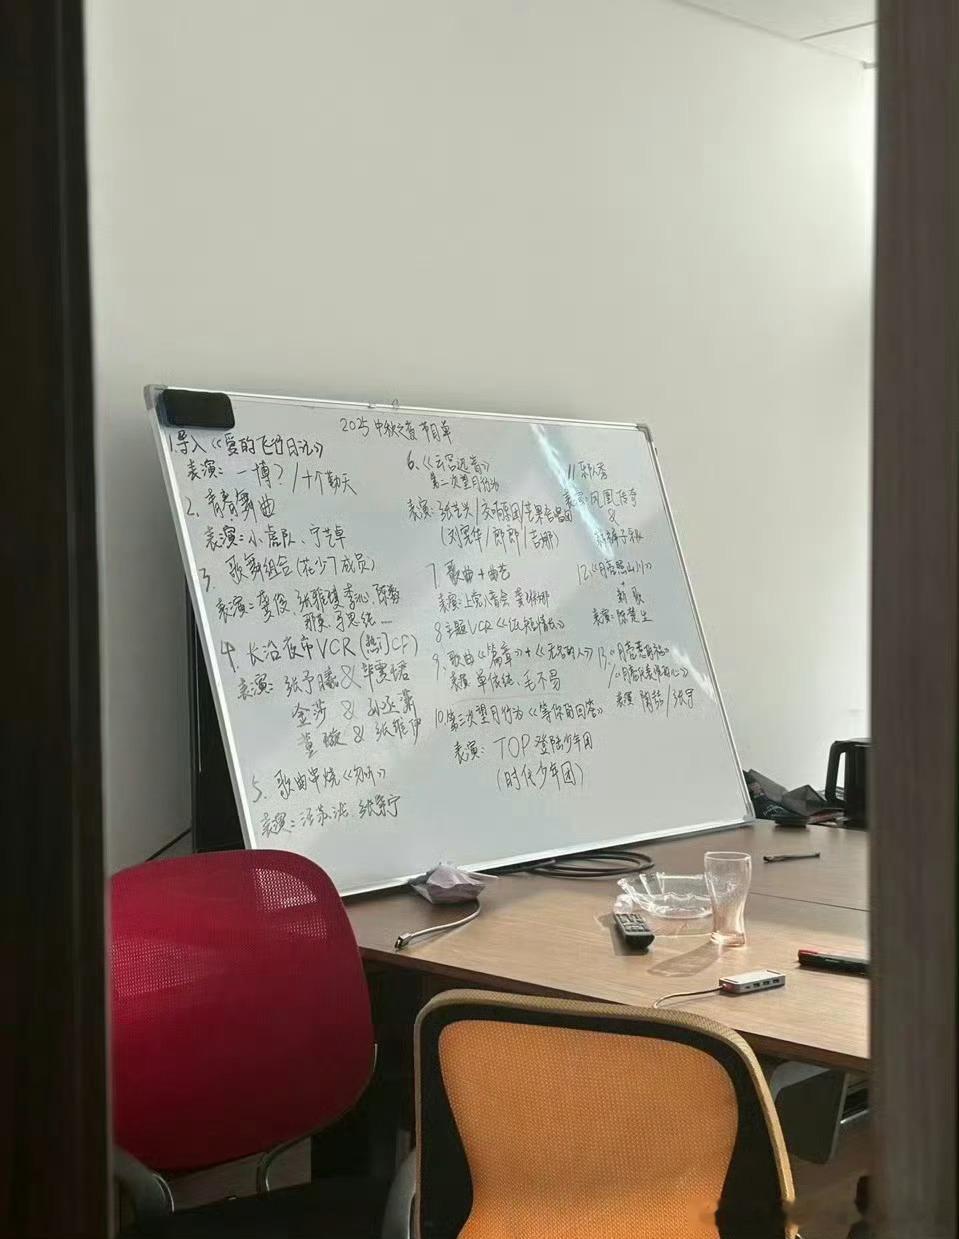 2025中秋之夜节目单
1.导入《爱的飞行日记》
表演：一博？/十个勤天
2、青春舞曲
表演：小虎队、宁艺卓
3、歌舞组合(花少7成员)
表演：龚俊、张雅琪 李沁、陈数
那英、马思纯……
4、长沙夜市VCR(热门CP)
表演：张予曦&毕雯珺
金莎 & 孙丞潇
董璇 & 张维伊
5、歌曲串烧《勿听》
表演：汪苏泷、张紫宁
6、《云宫迅音》
第二次望月行为
表演：张杰 /交响乐团/苹果合唱团
(刘宪华/郎郎/吉娜)
7、歌曲+曲艺
表演：上党八音会 龚琳娜
8、主题VCR《 》
9、歌曲《篇章》+《无名的人》
表演 单依纯、毛不易
10、第三次望月行为《等你的回答》
表演：TOP登陆少年团
(时代少年团)
11、乐队秀
表演：凤凰传奇
&
新裤子乐队
12、《月亮照山川》
新歌
表演：陈楚生
13、《月亮惹的祸》
/《月亮代表我的心》
表演 陶喆/张宇